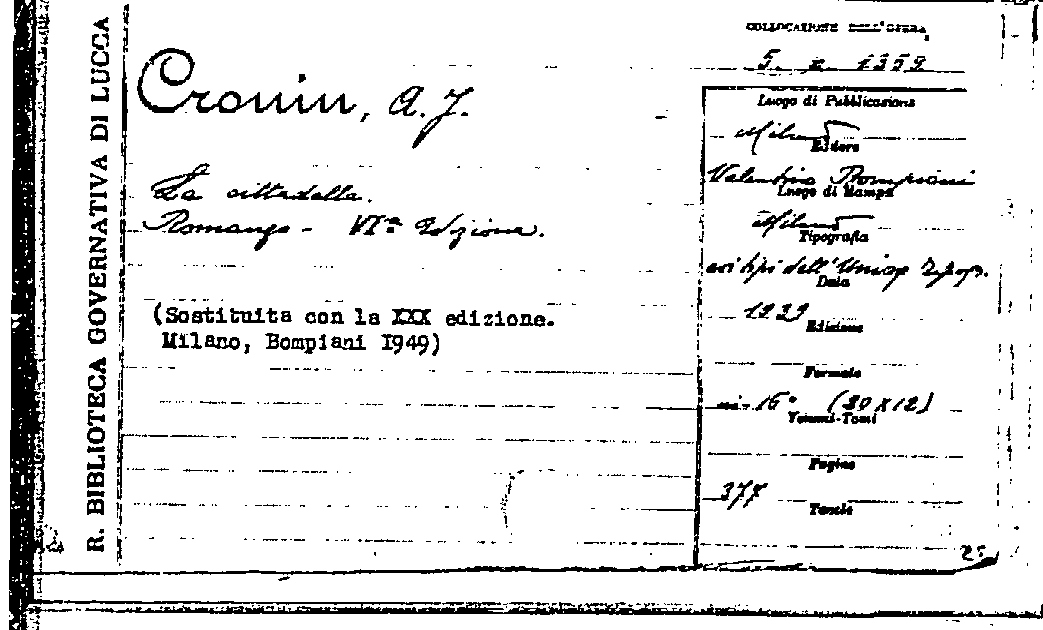 R. BIBLIOTECA GOVERNATIVA DI LUCCA
Cronin, A. J.
La cittadella.
Romanzo - VIª Edizione.
(Sostituita con la XXX edizione.
Milano, Bompiani 1949)
COLLOCAZIONE DELL'OPERA
5. z. 1359
Luogo di Pubblicazione
Milano
Editore
Valentino Bompiani
Luogo di Stampa
Milano
Tipografia
coi tipi dell'Unione Tipog.
Data
1939
Edizione
Formato
in-16° (20 X 12)
Volumi-Tomi
Pagine
377
Tavole